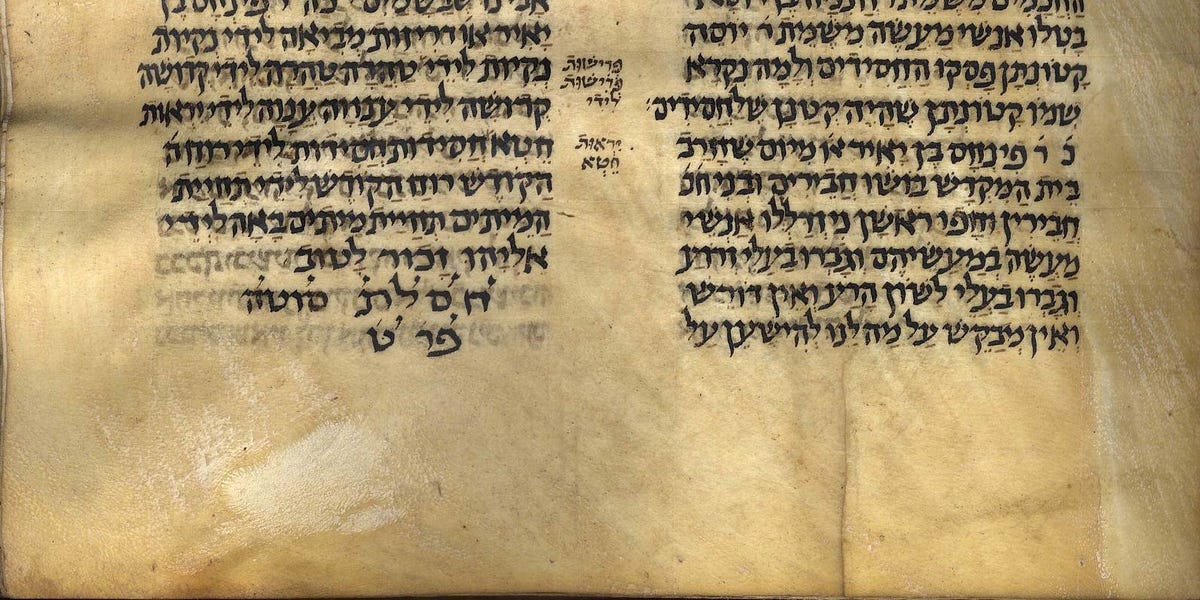 החכמים משמת ר' חנניה בן דוסא
בטלו אנשי מעשה משמת ר' יוסה
קטונתן פסקו החסידים ולמה נקרא
שמו קטונתן שהיה קטנן שלחסידים
כ ר' פינחס בן יאיר או' מיום שחרב
בית המקדש בושו חבירים
חבירין וחפו ראשן נידללו אנשי
מעשה במעשיהם וגברו בעלי זרוע
וגברו בעלי לשון הרע ואין דורש
ואין מבקש על מה לנו להישען על
פרישות
פרישות
לידי
יראות
חטא
אבינו שבשמים ר' פינחס בן
יאיר או' זריזות מביאה לידי נקיות
נקיות לידי טהרה טהרה לידי קדושה
קדושה לידי ענווה ענוה לידי יראות
חטא חסידות חסידות לידי רוח ה
הקודש רוח הקודש לידי תחיית
המיתים תחיית מיתים באה לידי
אליהו זכור לטוב
חסלת סוטה
פר ט